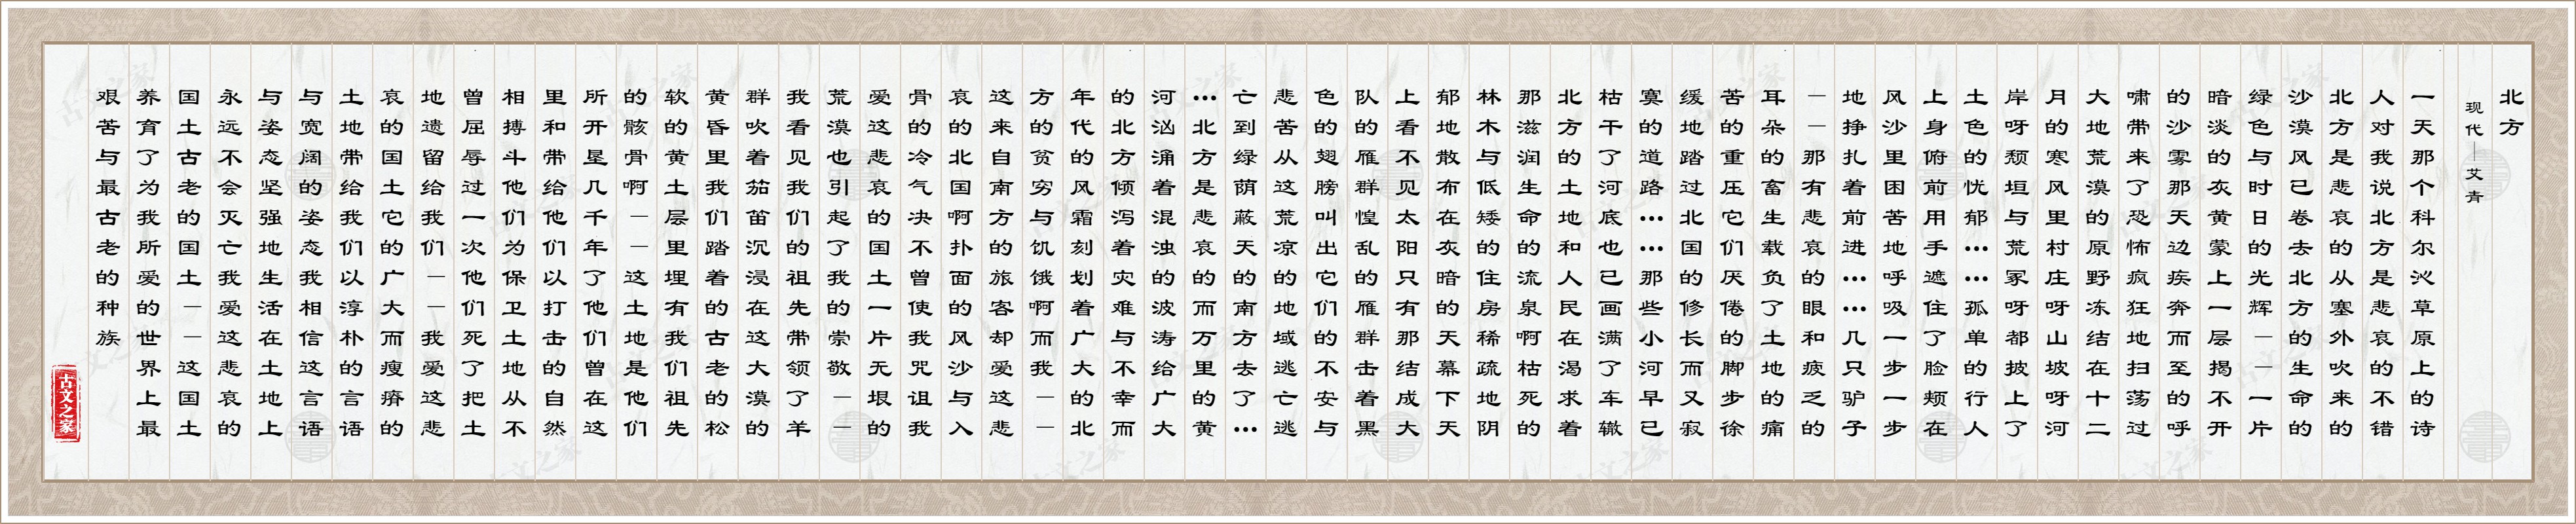 北方
现代—艾青
一天那个科尔沁草原上的诗
人对我说北方是悲哀的不错
北方是悲哀的从塞外吹来的
沙漠风已卷去北方的生命的
绿色与时日的光辉——一片
暗淡的灰黄蒙上一层揭不开
的沙雾那天边疾奔而至的呼
啸带来了恐怖疯狂地扫荡过
大地荒漠的原野冻结在十二
月的寒风里村庄呀山坡呀河
岸呀颓垣与荒冢呀都披上了
土色的忧郁……孤单的行人
上身俯前用手遮住了脸颊在
风沙里困苦地呼吸一步一步
地挣扎着前进……几只驴子
——那有悲哀的眼和疲乏的
耳朵的畜生载负了土地的痛
苦的重压它们厌倦的脚步徐
缓地踏过北国的修长而又寂
寞的道路……那些小河早已
枯干了河底也已画满了车辙
北方的土地和人民在渴求着
那滋润生命的流泉啊枯死的
林木与低矮的住房稀疏地阴
郁地散布在灰暗的天幕下天
上看不见太阳只有那结成大
队的雁群惶乱的雁群击着黑
色的翅膀叫出它们的不安与
悲苦从这荒凉的地域逃亡逃
亡到绿荫蔽天的南方去了…
…北方是悲哀的而万里的黄
河汹涌着混浊的波涛给广大
的北方倾泻着灾难与不幸而
年代的风霜刻划着广大的北
方的贫穷与饥饿啊而我——
这来自南方的旅客却爱这悲
哀的北国啊扑面的风沙与入
骨的冷气决不曾使我咒诅我
爱这悲哀的国土一片无垠的
荒漠也引起了我的崇敬——
我看见我们的祖先带领了羊
群吹着笳笛沉浸在这大漠的
黄昏里我们踏着的古老的松
软的黄土层里埋有我们祖先
的骸骨啊——这土地是他们
所开垦几千年了他们曾在这
里和带给他们以打击的自然
相搏斗他们为保卫土地从不
曾屈辱过一次他们死了把土
地遗留给我们——我爱这悲
哀的国土它的广大而瘦瘠的
土地带给我们以淳朴的言语
与宽阔的姿态我相信这言语
与姿态坚强地生活在土地上
永远不会灭亡我爱这悲哀的
国土古老的国土——这国土
养育了为我所爱的世界上最
艰苦与最古老的种族
古文之家